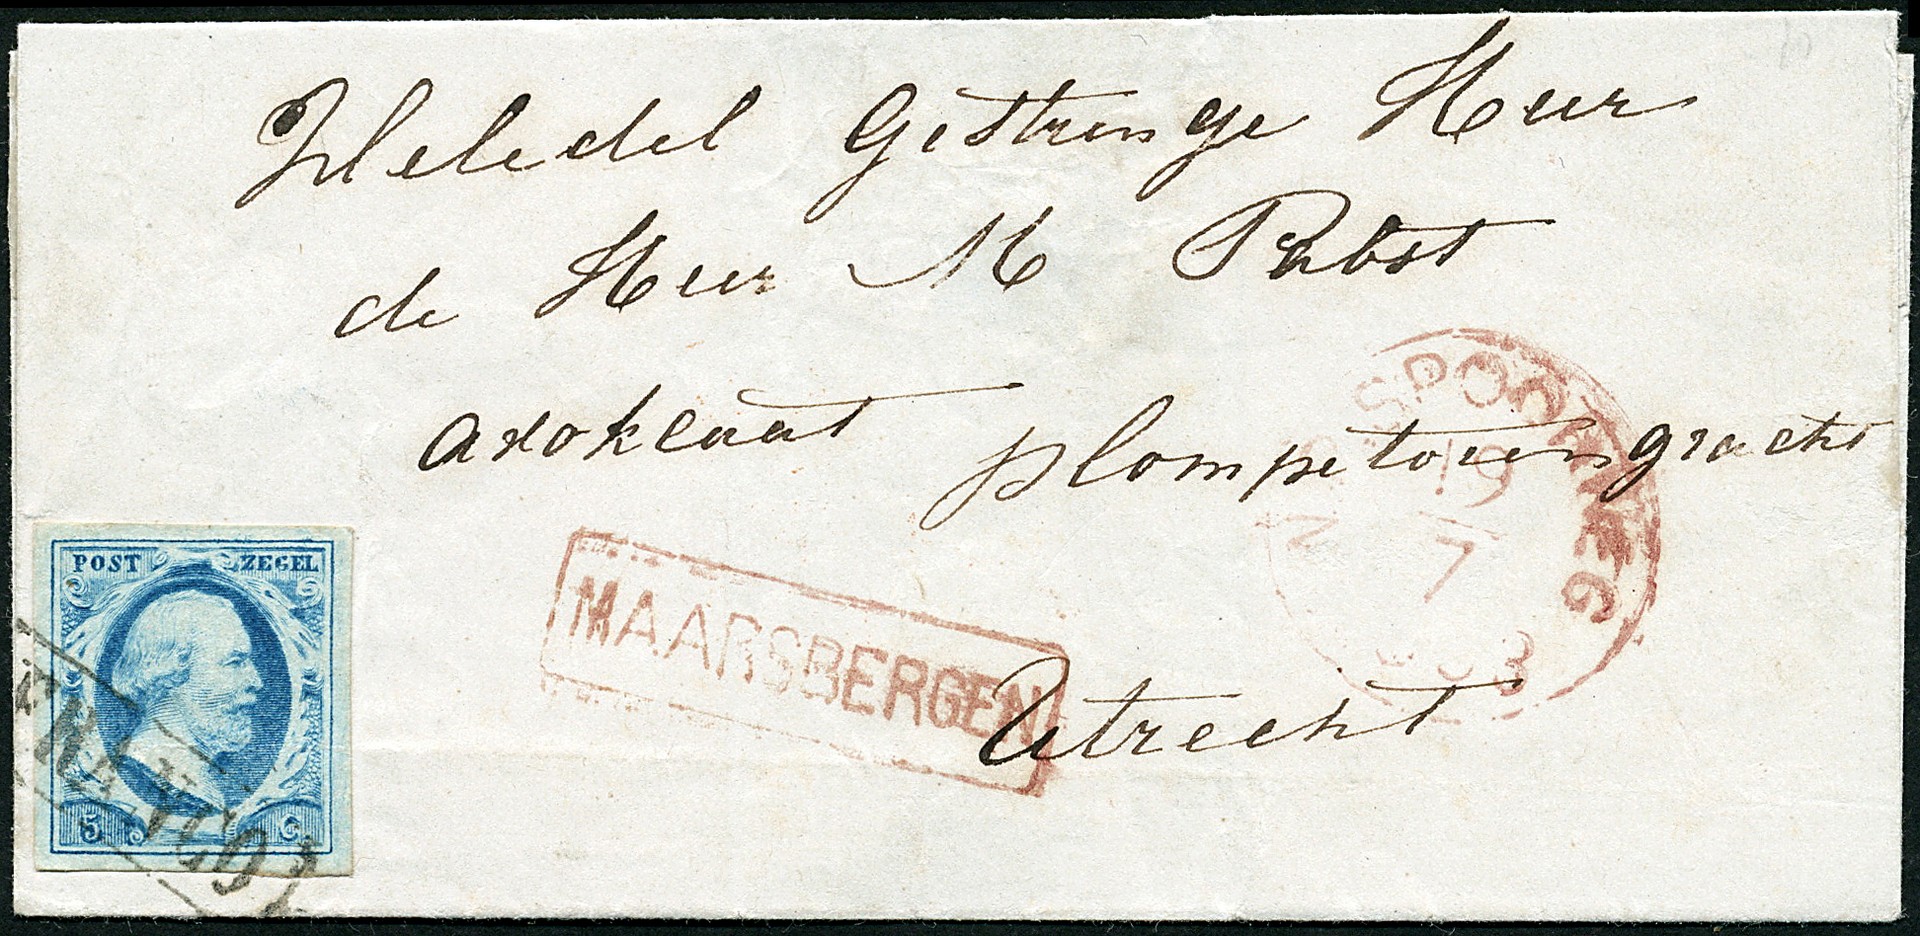 Weledel Gestrenge Heer
de Heer M Pabst
advokaat plompetorengracht
Utrecht
MAARSBERGEN
N R SPOORWEG
19
7
63
POST ZEGEL
5 C
FRANCO